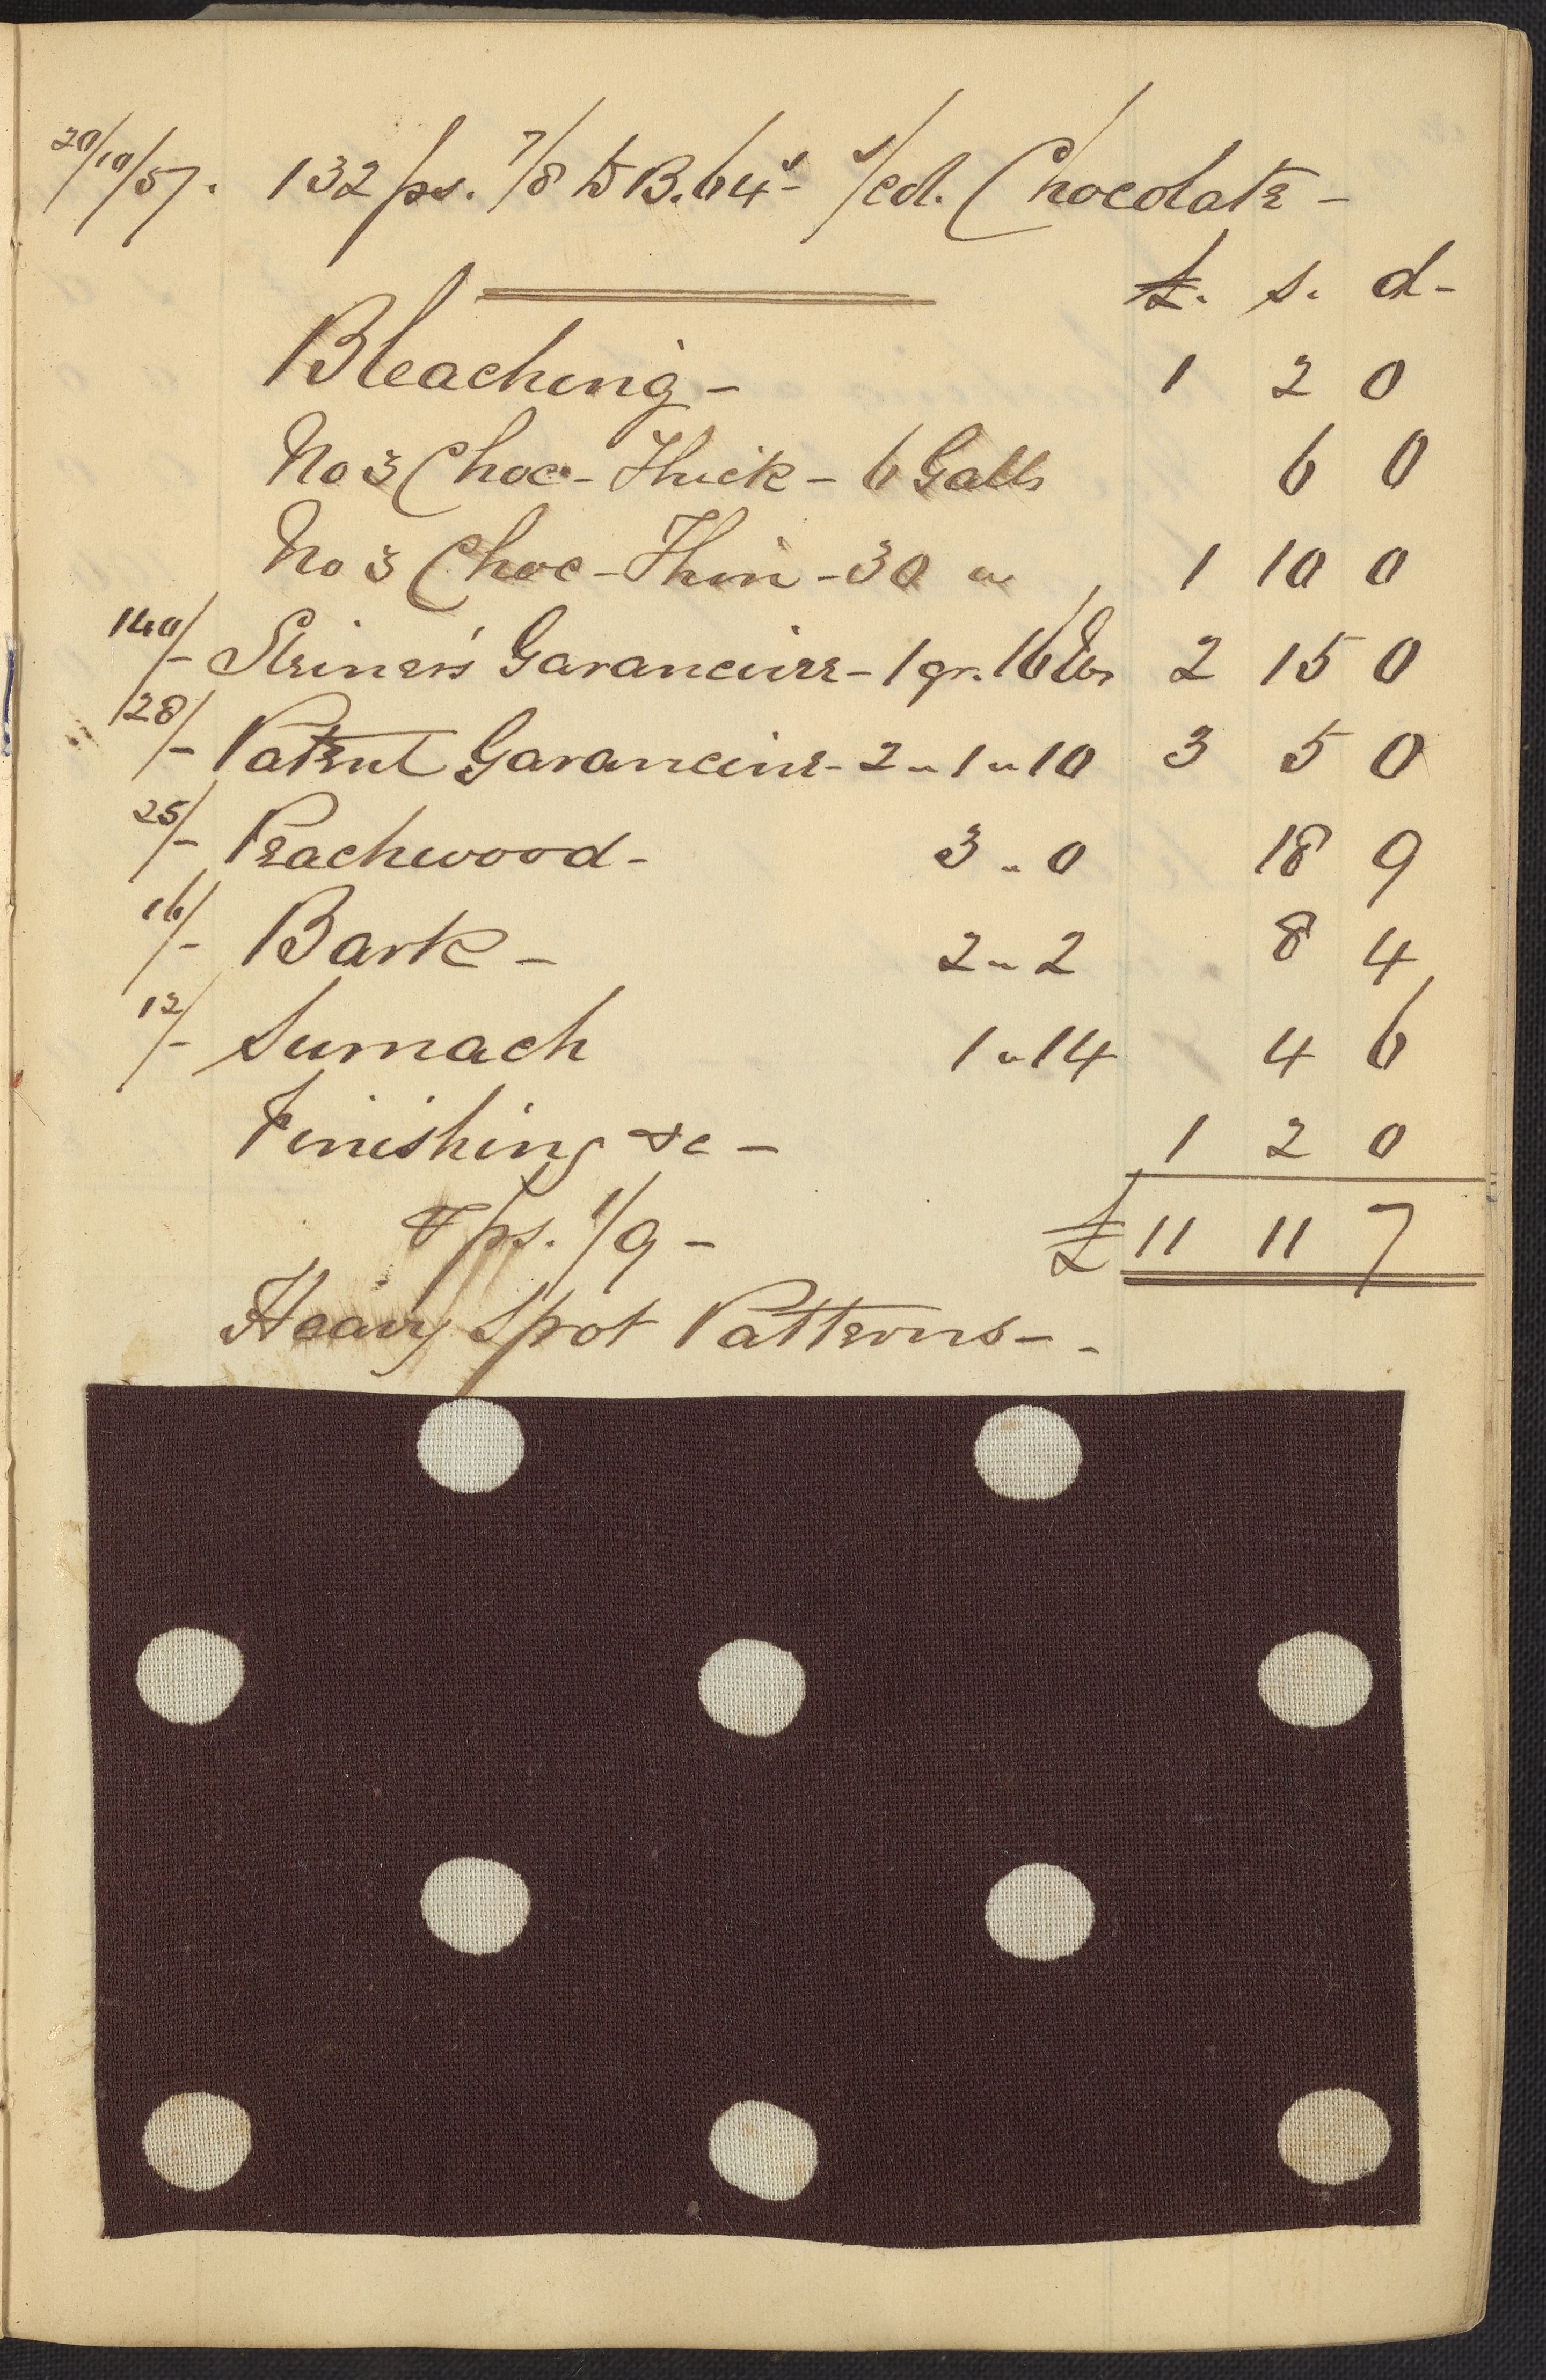 20/10/57. 132 ps. 7/8 to B. 64s - 1/cd. Chocolate -
£. s. d -
Bleaching - 1 2 0
No 3 Choc - Thick - 6 Galls 6 0
No 3 Choc - Thin - 30 " 1 10 0
140/- Steiner's Garancine - 1 qr. 16 lbs 2 15 0
28/- Patent Garancine - 2 " 1 " 10 3 5 0
25/- Peachwood - 3 " 0 18 9
16/- Bark - 2 " 2 8 4
12/- Sumach 1 " 14 4 6
Finishing &c - 1 2 0
ps. 1/9 - £ 11 11 7
Heavy Spot Patterns -